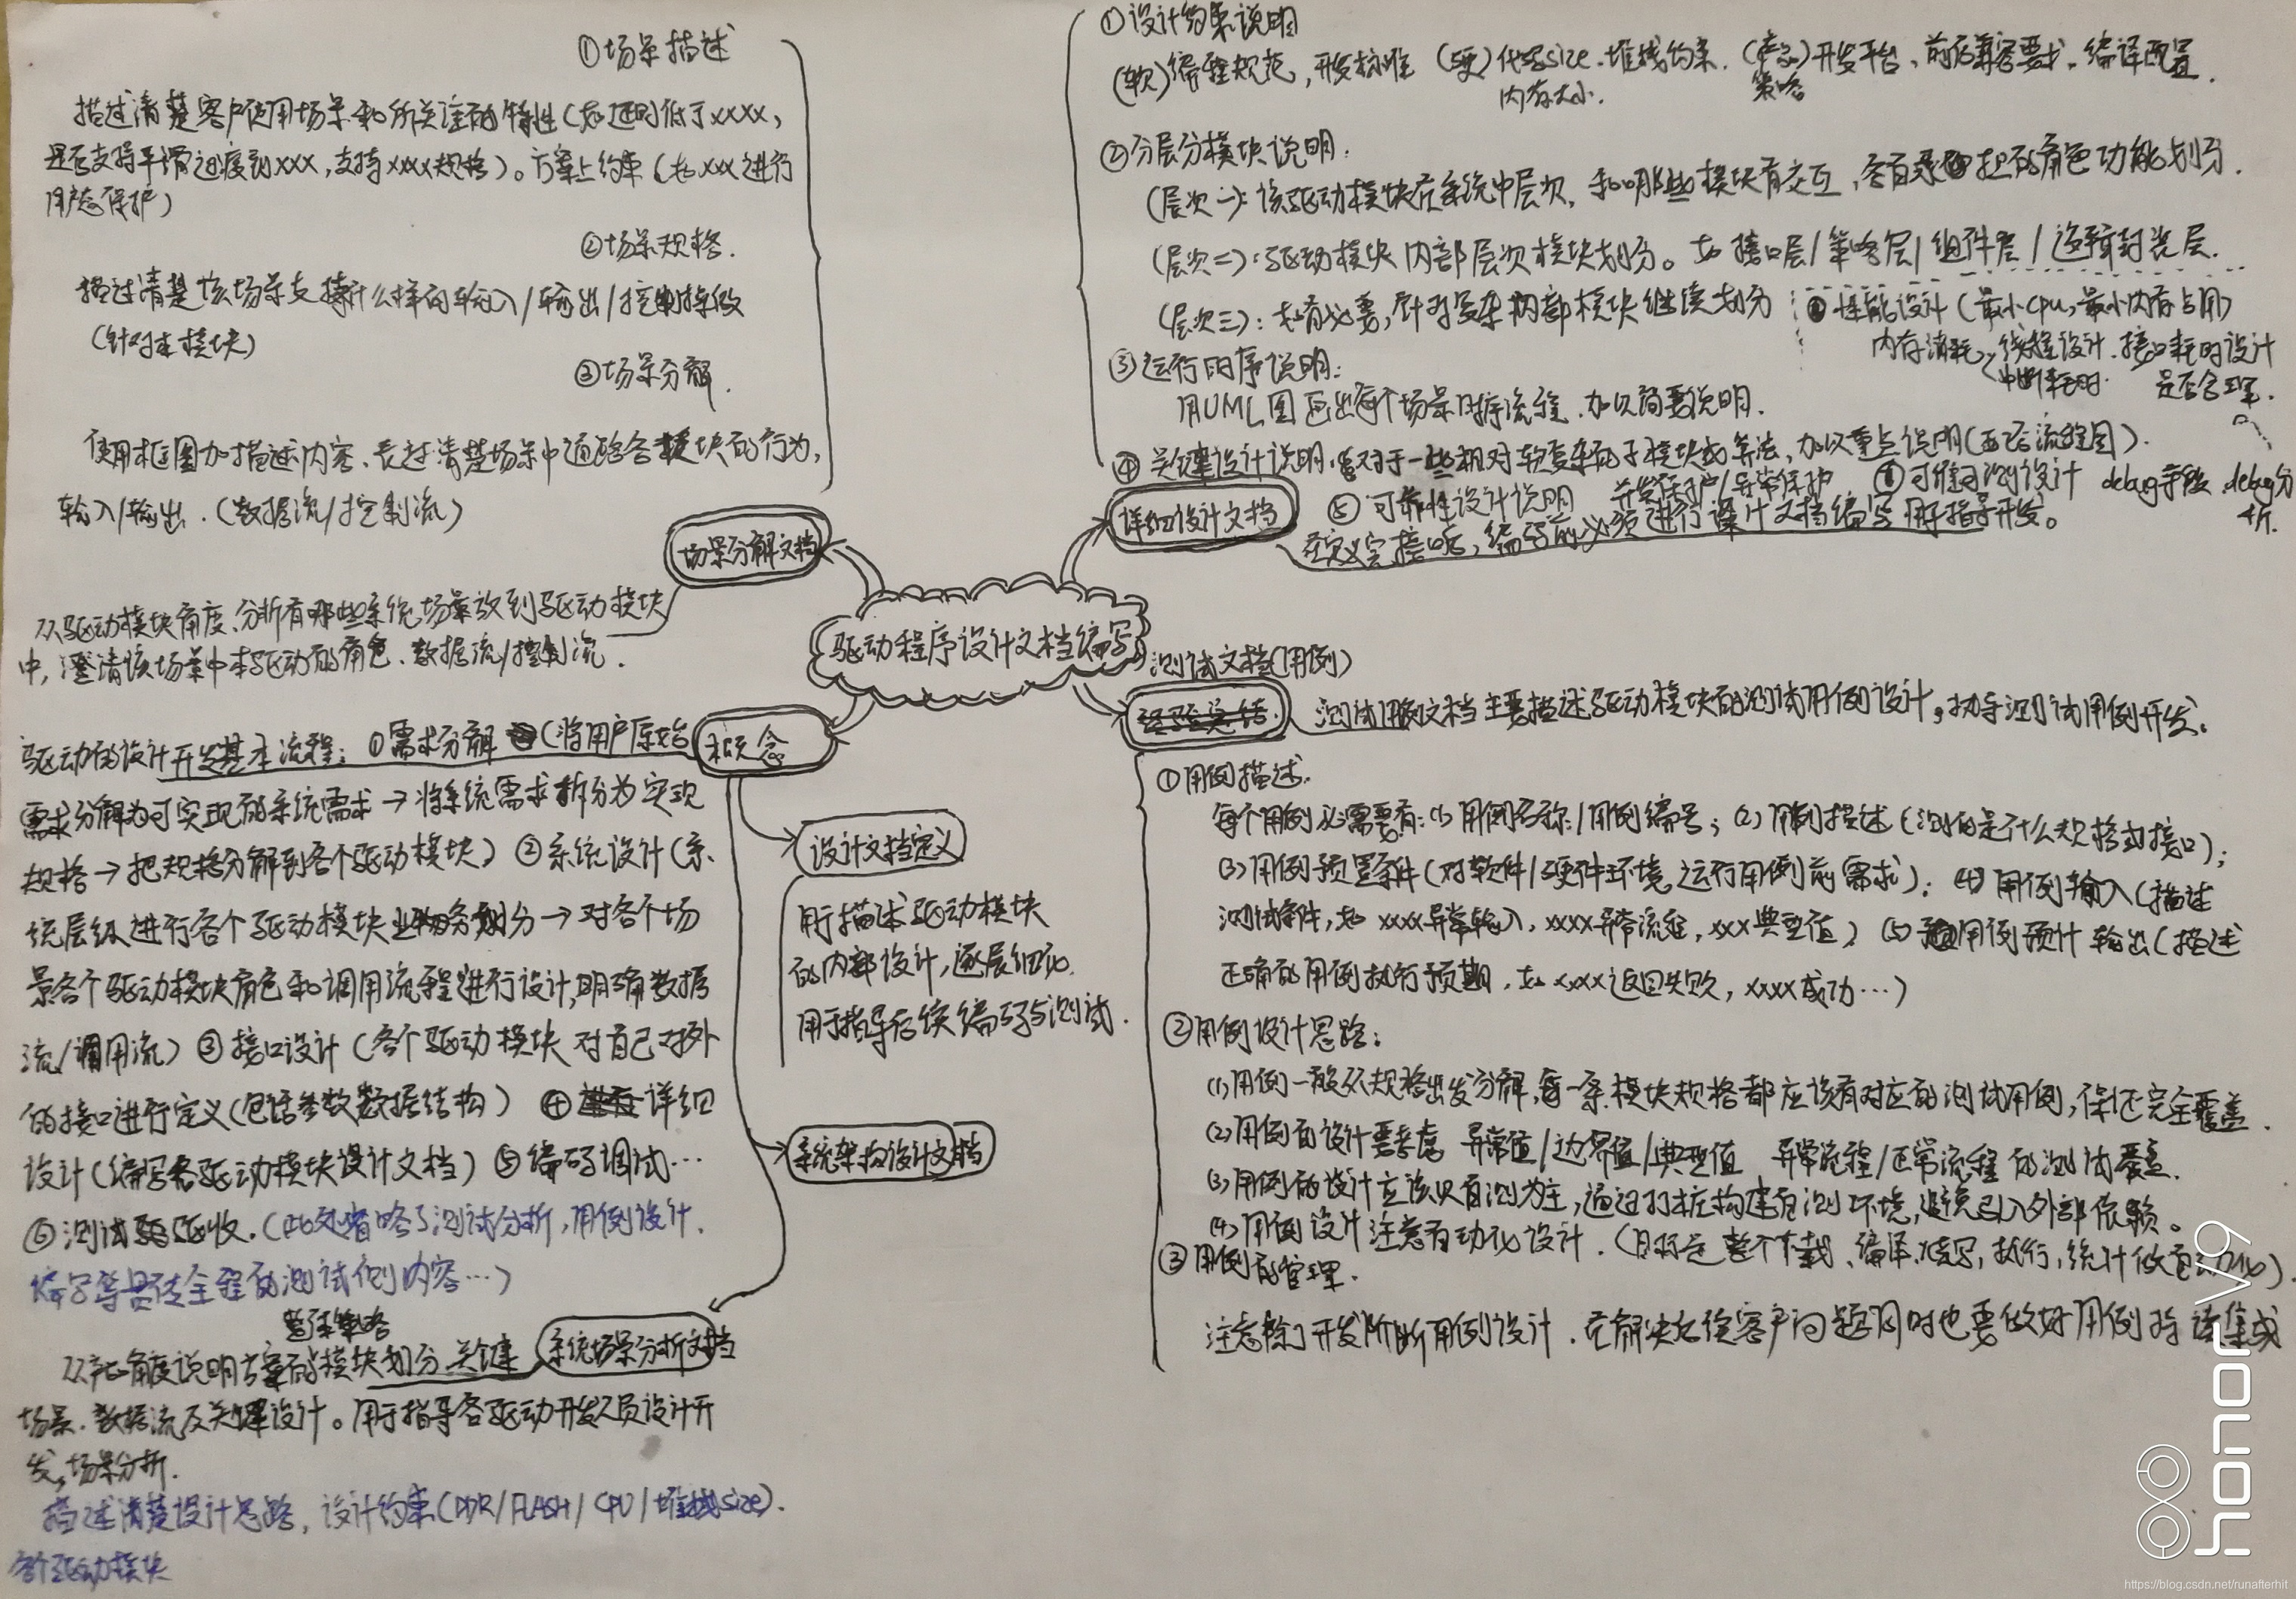 ①场景描述
描述清楚客户使用场景和所关注的特性(如延时低于xxxx,
是否支持平滑过度到xxx,支持xxxx规格)。方案上约束(如xxx进行
保护)
②场景规格.
描述清楚该场景支持什么样的输入/输出/控制
(针对本模块)
③场景分解.
使用框图加描述内容、表述清楚场景中通路各模块的行为,
输入/输出.(数据流/控制流)
场景分解文档
从驱动模块角度、分析有哪些系统场景放到驱动模块
中,澄清该场景中本驱动的角色、数据流/控制流.
①设计约束说明
(软)编程规范,开发标准 (硬)代码size、堆栈约束. (产品)开发平台、前后兼容要求、编译配置.
内存大小. 策略
②分层分模块说明:
(层次一):该驱动模块在系统中层次,和哪些模块有交互,各自承担的角色功能划分.
(层次二):驱动模块内部层次模块划分。如接口层/策略层/组件层/逻辑封装层.
(层次三):如有必要,针对复杂内部模块继续划分
⑥性能设计(最小CPU,最小内存占用)
内存消耗、线程设计、接口耗时设计
中断耗时. 是否合理.
③运行时序说明:
用UML图画出每个场景时序流程、加以简要说明.
④关键设计说明.对于一些相对较复杂的子模块或算法,加以重点说明(画流程图).
⑤可靠性设计说明 并发保护/异常保护 可维可测设计 debug手段、debug分
析.
详细设计文档
在定义完接口后,编码前必须进行设计文档编写用于指导开发。
驱动程序设计文档编写
测试文档(用例)
测试用例文档主要描述驱动模块的测试用例设计。指导测试用例开发.
①用例描述.
每个用例必需要有:(1)用例名称/用例编号;(2)用例描述(测的是什么规格或接口);
(3)用例预置条件(对软件/硬件环境运行用例前需求);(4)用例输入(描述
测试条件,如xxxx异常输入,xxxx异常流程,xxx典型值)(5)用例预计输出(描述
正确的用例执行预期,如xxxx返回失败,xxxx成功…)
②用例设计思路:
(1)用例一般从规格出发分解,每一条模块规格都应该有对应的测试用例,保证完全覆盖.
(2)用例的设计要考虑 异常值/边界值/典型值 异常流程/正常流程的测试覆盖.
(3)用例的设计应该以自测为主,通过打桩构建自测环境,避免引入外部依赖。
(4)用例设计注意自动化设计.(目标是整个下载、编译、烧写,执行,统计做自动化).
③用例的管理.
注意除了开发阶断用例设计.在解决后续客户问题同时也要做好用例持续集成
概念
驱动的设计开发基本流程:①需求分解(将用户原始
需求分解为可实现的系统需求→将系统需求拆分为实现
规格→把规格分解到各个驱动模块)②系统设计(系
统层级进行各个驱动模块业务划分→对各个场
景各个驱动模块角色和调用流程进行设计,明确数据
流/调用流)③接口设计(各个驱动模块对自己对外
的接口进行定义(包括参数数据结构)④详细
设计(编写各驱动模块设计文档)⑤编码调试…
⑥测试验收.(此处省略了测试分析,用例设计.
编写等贯彻全程的测试侧内容…)
设计文档定义
用于描述驱动模块
的内部设计,逐层细化.
用于指导后续编码与测试.
系统架构设计文档
系统场景分析文档
整体策略
从产品角度说明方案的模块划分 关键
场景、数据流及关键设计。用于指导各驱动开发人员设计开
发,场景分析.
描述清楚设计思路,设计约束(DDR/FLASH/CPU/堆栈size).
各个驱动模块
honor V9
https://blog.csdn.net/runafterhit